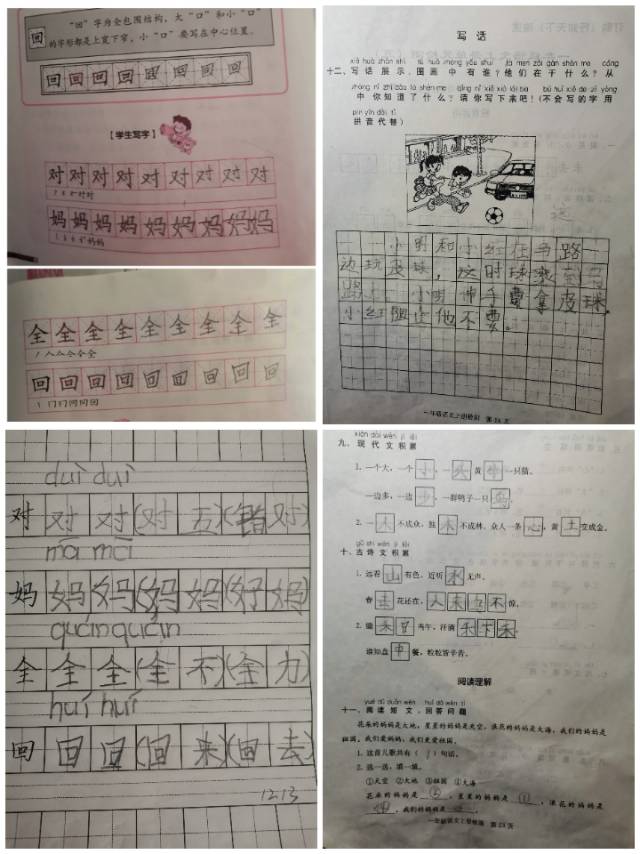 "回"字为全包围结构，大"口"和小"口"
的字形都是上宽下窄，小"口"要写在中心位置。
回
回 回 回 回 回 回 回 回
【学生写字】
对 对 对 对 对 对 对 对
妈 妈 妈 妈 妈 妈 妈 妈 妈
全 全 全 全 全 全 全 全 全
丿 人 人 仝 仝 全
回 回 回 回 回 回 回 回 回
丨 冂 冂 冋 冋 回
写话
xiě huà zhǎn shì
十二、写话展示。图画中有谁?他们在干什么?从
中你知道了什么?请你写下来吧!(不会写的字用
pīn yīn dài tì
拼音代替)
小明和小红在马路
边玩皮球,
小红阻止他不要。
一年级语文上册检测
duì duì
对 对 对 (对 去)(错 对)
mā mā
妈 妈 妈 (妈 妈)(好 妈)
quán quán
全 全 全 (全 不)(全 力)
huí huí
回 回 回 (回 来)(回 去)
12.13
xiàn dài wén jī lěi
九、现代文积累
1. 一个大,一个小,一头黄牛一只猫。
一边多,一边少,一群鸭子一只鸟。
2. 一人不成众,独木不成林。众人一条心,黄土变成金。
gǔ shī wén jī lěi
十、古诗文积累
1. 远看山有色,近听水无声。
春去花还在,人来鸟不惊。
2. 锄禾日当午,汗滴禾下
谁知盘中餐,粒粒皆辛苦。
阅读理解
yuè dú duǎn wén huí dá wèn tí
十一、阅读短文,回答问题
花朵的妈妈是大地,星星的妈妈是天空,浪花的妈妈是大海,我们的妈妈是
祖国。我们爱妈妈,我们更爱祖国。
1. 这首儿歌共有( )句话。
2. 选一选,填一填。
①天空 ②大地 ③祖国 ④大海
花朵的妈妈是②,星星的妈妈是①,浪花的妈妈是
,我们的妈妈是
一年级语文上册检测